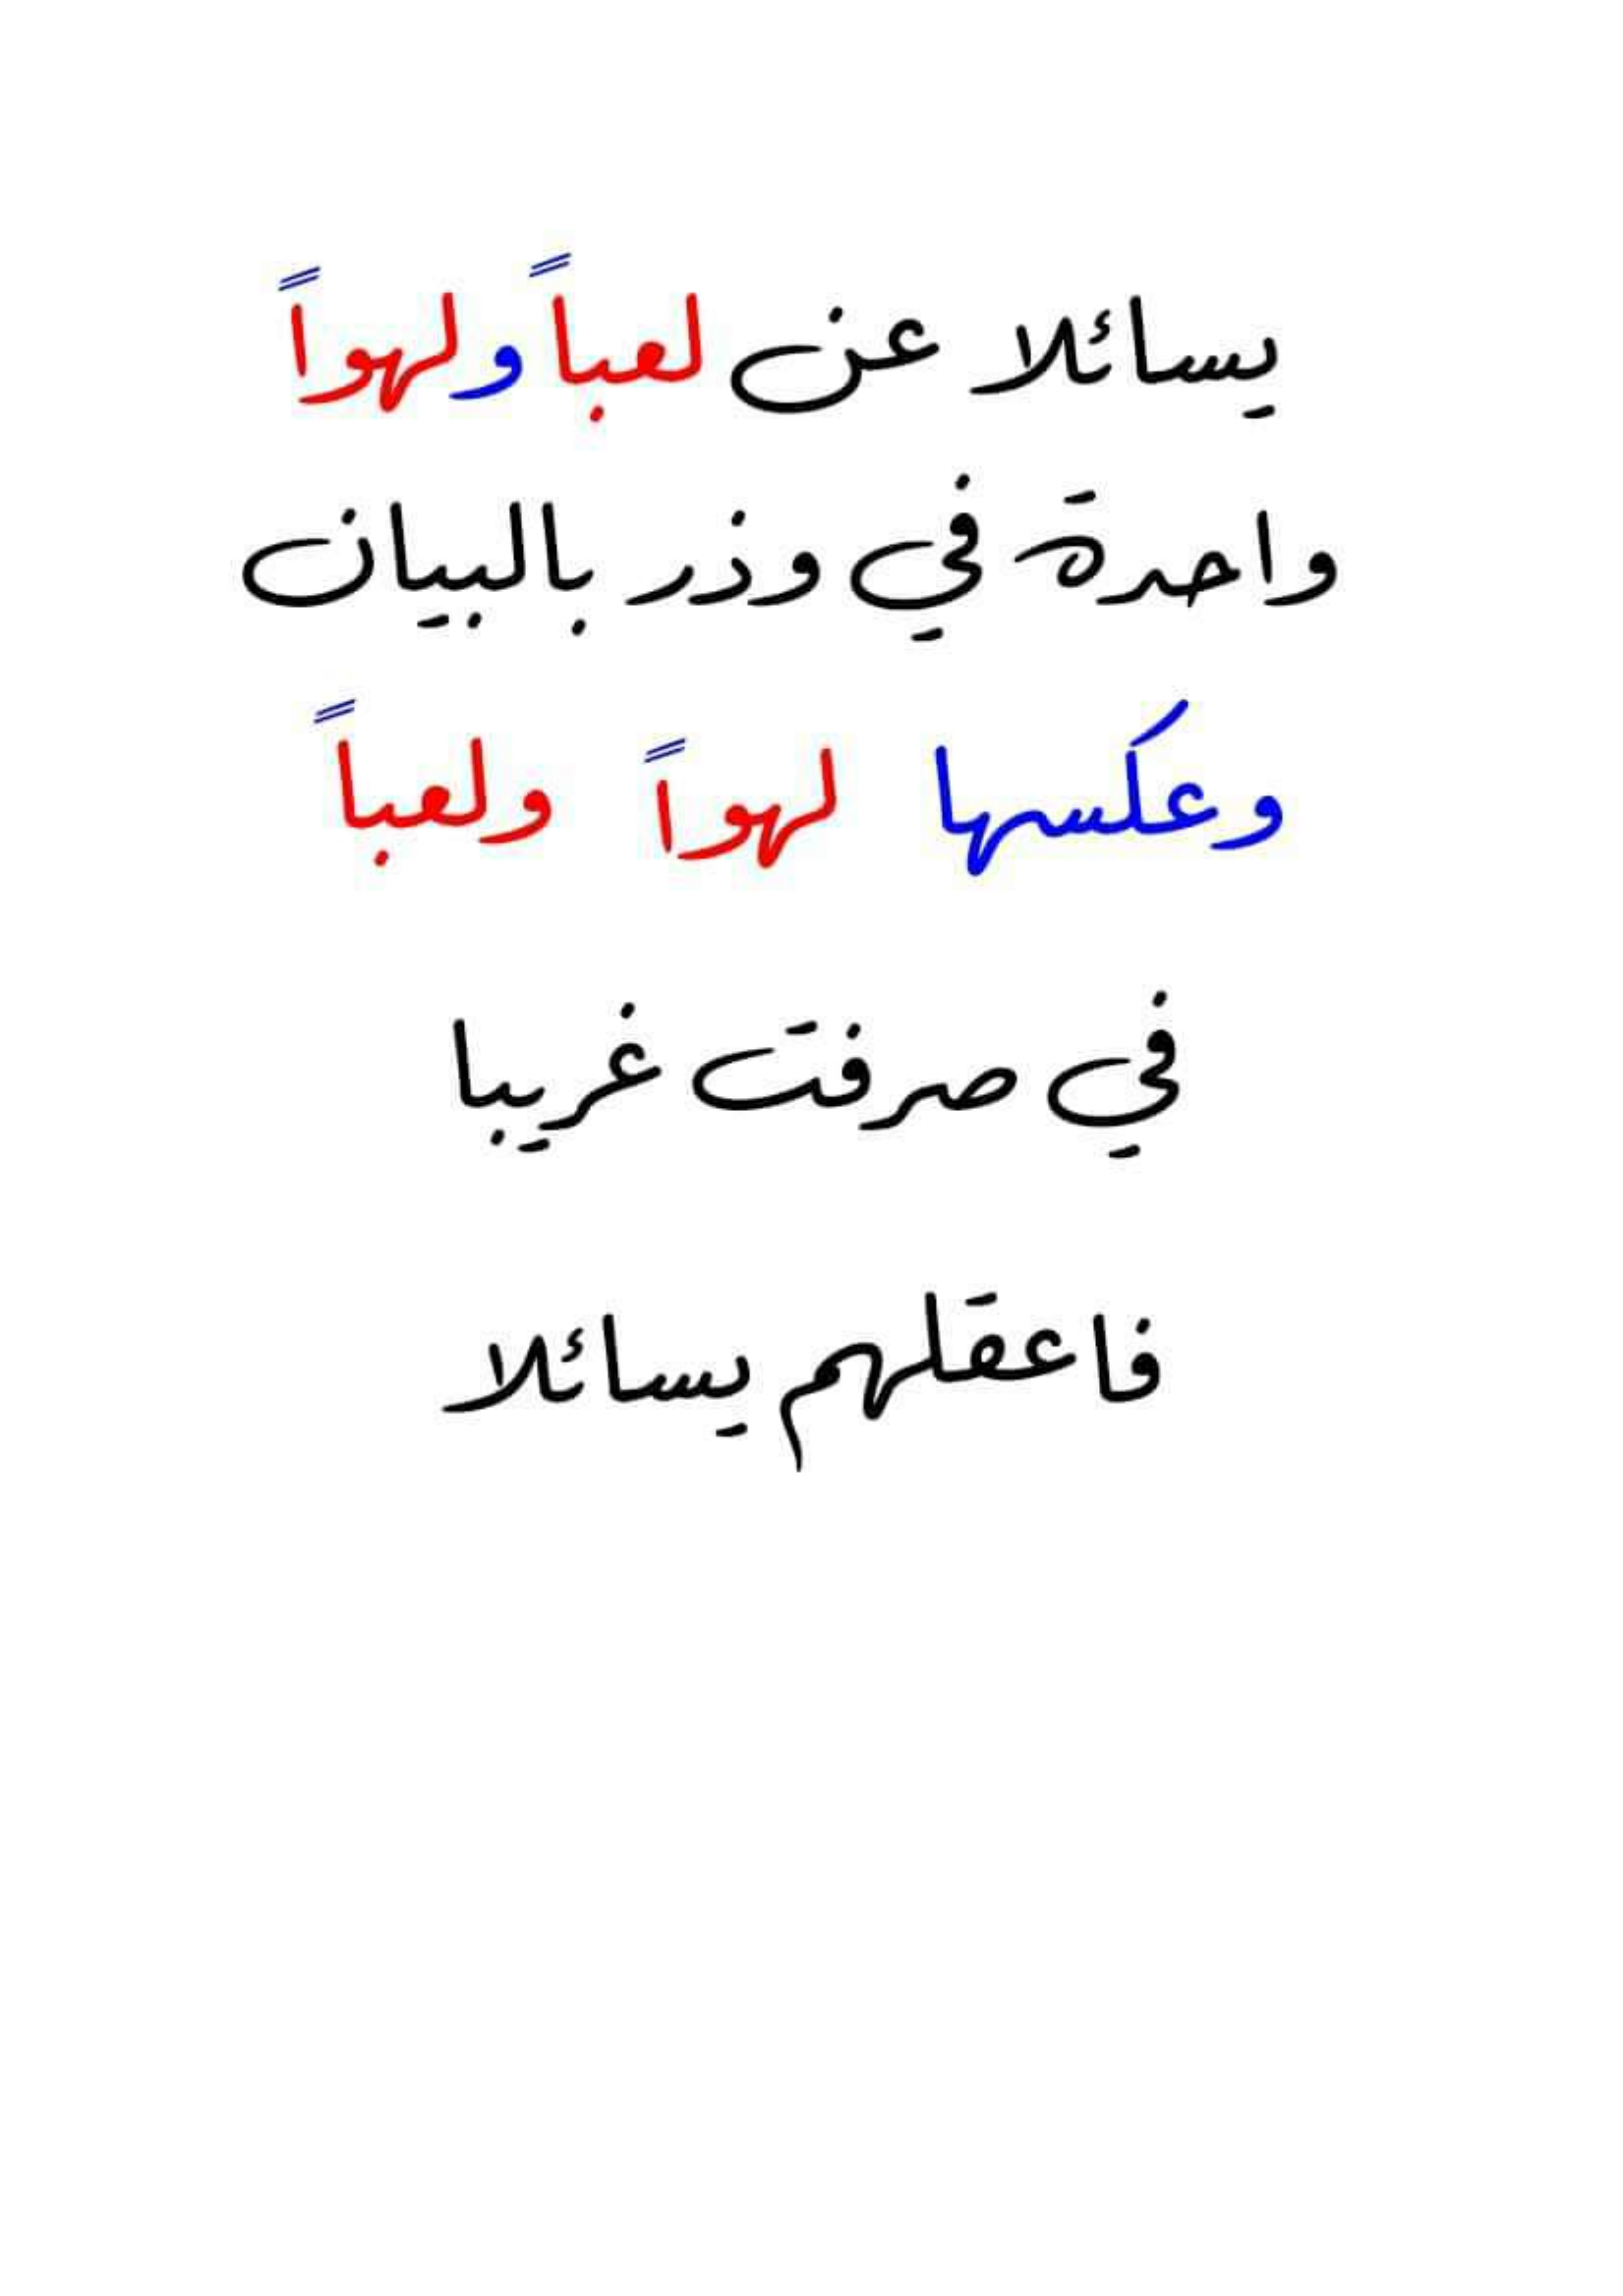 يسائلا عن لعباً ولهواً
واحدة في وذر بالبيان
وعكسها لهواً ولعباً
في صرفت غريبا
فاعقلهم يسائلا